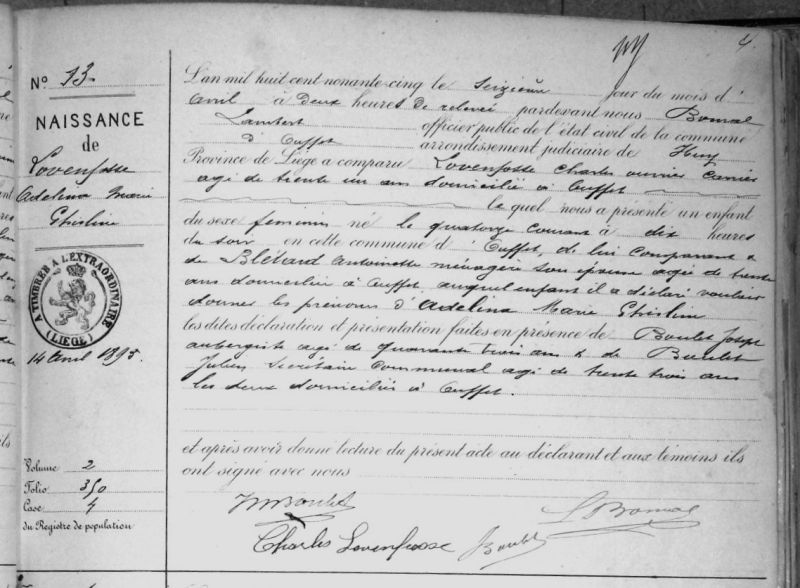 4.
N° 13.
NAISSANCE
de
Lovenfosse
Adelina Marie
Ghisline
A TIMBRER A L'EXTRAORDINAIRE
(LIEGE)
14 Avril 1895.
Volume 2
Folio 350
Case 4
du Registre de population
L'an mil huit cent nonante-cinq le seizième jour du mois d'
Avril à deux heures de relevée pardevant nous Bomal
Lambert officier public de l'état civil de la commune
d'Ouffet arrondissement judiciaire de Huy
Province de Liège a comparu Lovenfosse Charles ouvrier carrier
agé de trente un ans domicilié à Ouffet
le quel nous a présenté un enfant
du sexe feminin né le quatorze courant à dix heures
du soir en cette commune d'Ouffet, de lui comparant &
de Blétard Antoinette ménagère son épouse agée de trente
ans domiciliée à Ouffet, auquel enfant il a déclaré vouloir
donner les prénoms d'Adelina Marie Ghislin
les dites déclaration et présentation faites en présence de Boulet Joseph
aubergiste agé de quarante trois ans & de Boulet
Julien Secrétaire Communal agé de trente trois ans
les deux domiciliés à Ouffet.
et après avoir donné lecture du présent acte au déclarant et aux témoins ils
ont signé avec nous
Boulet
L Bomal
Charles Lovenfosse Boulet